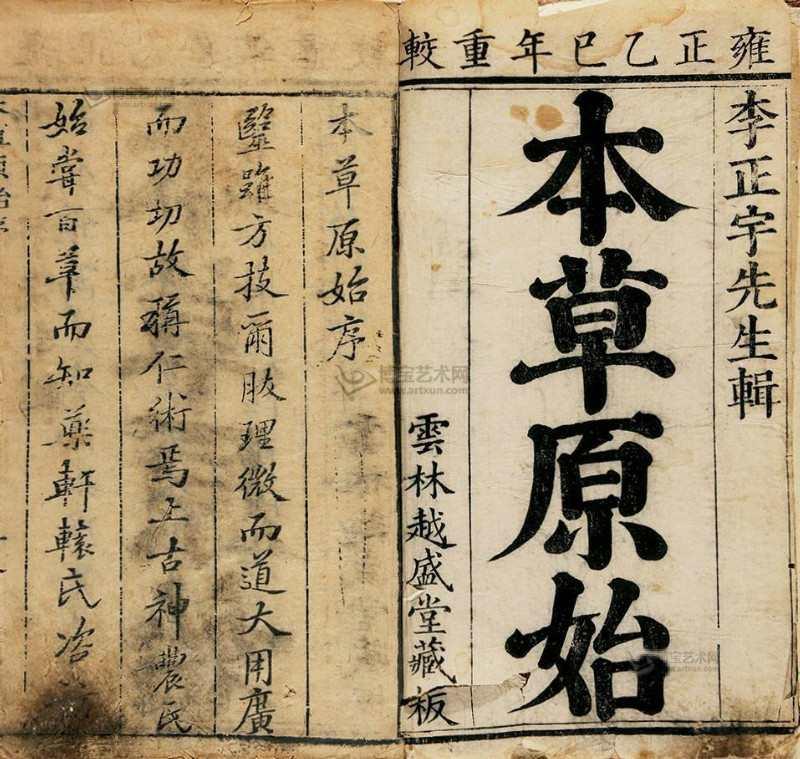 雍正乙巳年重較
李正宇先生輯
本草原始
雲林越盛堂藏板
本草原始序
毉雖方技爾肢理微而道大用廣
而功切故稱仁術焉上古神農氏
始嘗百草而知藥軒轅氏咨
博宝艺术网
www.artxun.com